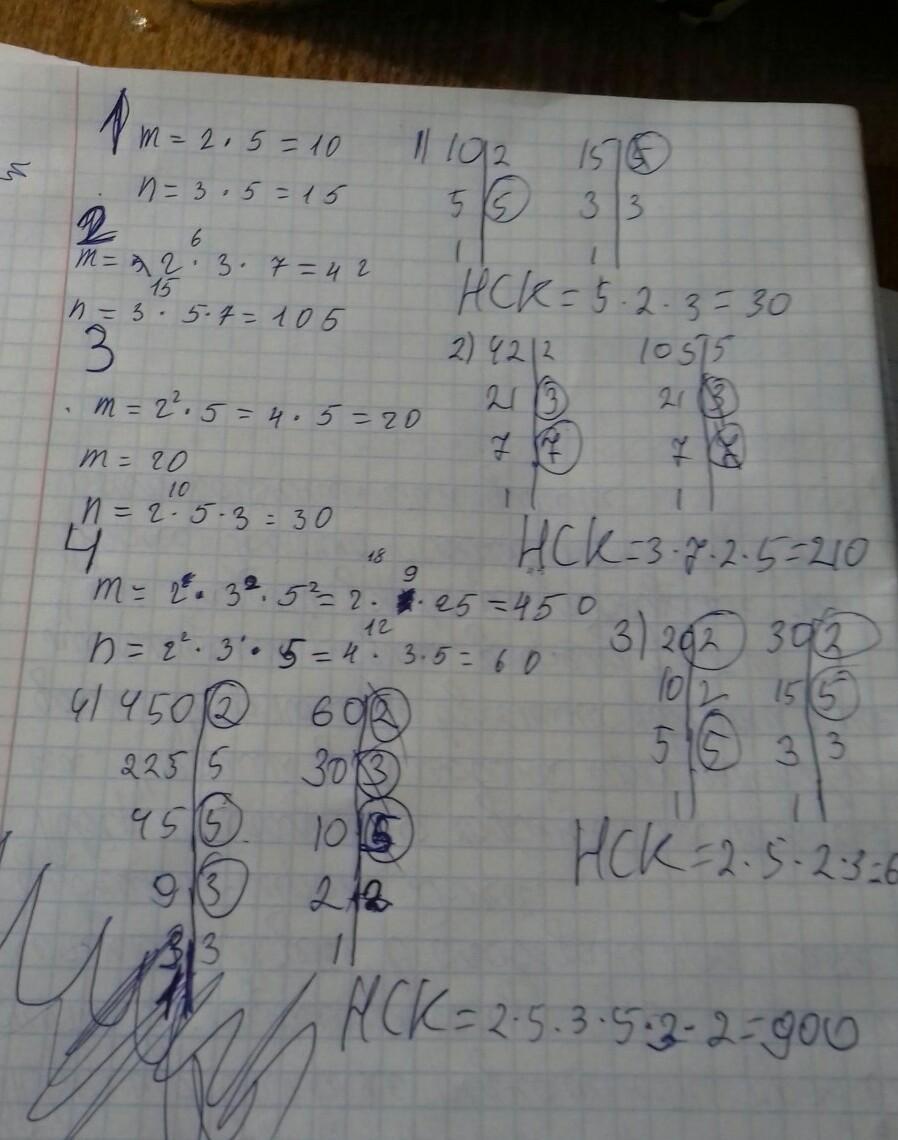 1
m = 2 · 5 = 10
n = 3 · 5 = 15
2
6
m = 2 · 3 · 7 = 42
15
n = 3 · 5 · 7 = 105
3
m = 2² · 5 = 4 · 5 = 20
m = 20
10
n = 2 · 5 · 3 = 30
4
18 9
m = 2 · 3² · 5² = 2 · · 25 = 450
12
n = 2² · 3 · 5 = 4 · 3 · 5 = 60
1) 10 2 15 5
5 5 3 3
1 1
НСК = 5 · 2 · 3 = 30
2) 42 2 105 5
21 3 21 3
7 7 7 7
1 1
НСК = 3 · 7 · 2 · 5 = 210
3) 20 2 30 2
10 2 15 5
5 5 3 3
1 1
НСК = 2 · 5 · 2 · 3 = 6
4) 450 2 60 2
225 5 30 3
45 5 10 5
9 3 2 2
3 3 1
1
НСК = 2 · 5 · 3 · 5 · 3 · 2 = 900